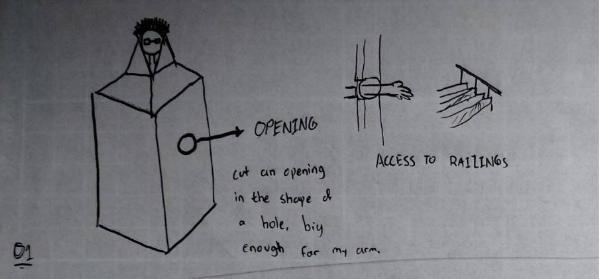 OPENING
cut an opening
in the shape of
a hole, big
enough for my arm.
ACCESS TO RAILINGS
01